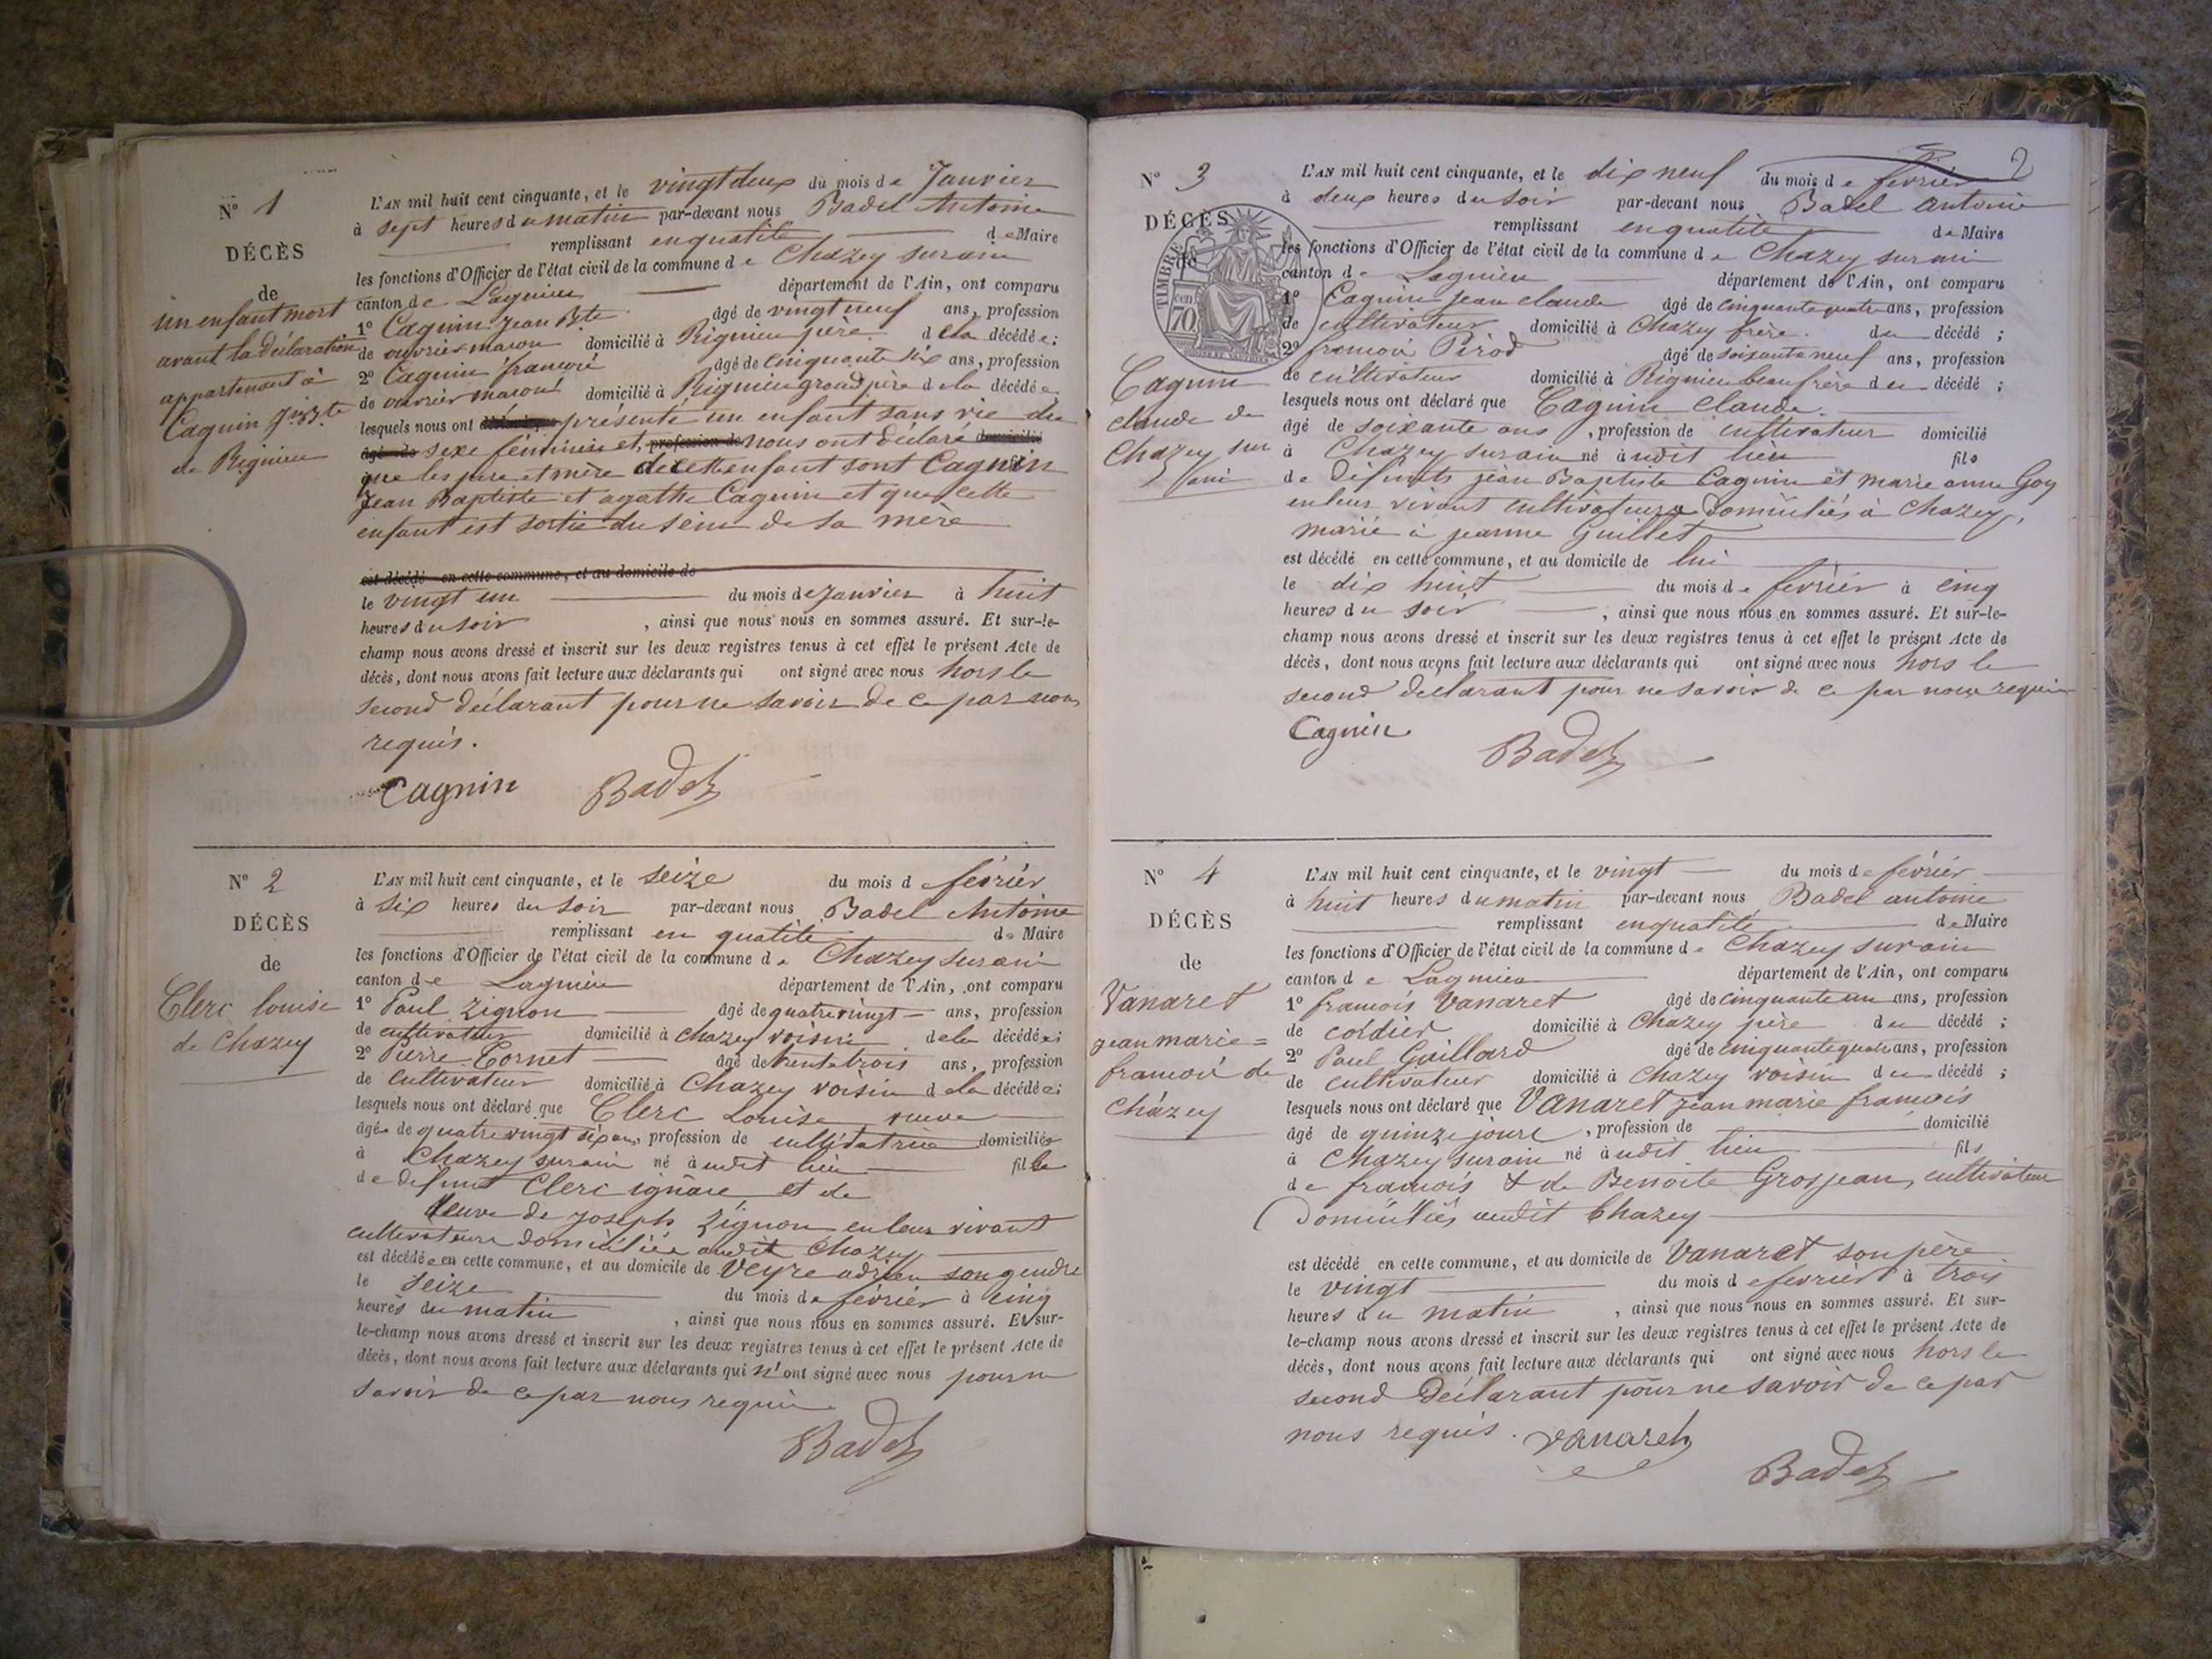 N° 1
DÉCÈS
de
un enfant mort
avant la déclaration
appartenant à
Cagnin J. Bte
de Rignieu
L'AN mil huit cent cinquante, et le vingt deux du mois de Janvier
à sept heures du matin par-devant nous Badel Antoine
remplissant en qualité de Maire
les fonctions d'Officier de l'état civil de la commune de Chazey sur ain
canton de Lagnieu département de l'Ain, ont comparu
1° Cagnin Jean Bte âgé de vingt neuf ans, profession
de ouvrier maçon domicilié à Rignieu père de la décédée;
2° Cagnin françois âgé de cinquante six ans, profession
de ouvrier maçon domicilié à Rignieu grand père de la décédée
lesquels nous ont présenté un enfant sans vie du
sexe féminin et, nous ont déclaré
que les père et mère de cet enfant sont Cagnin
Jean Baptiste et agathe Cagnin et que cette
enfant est sortie du sein de sa mère
est décédé en cette commune, et au domicile de
le vingt un du mois de Janvier à huit
heures du soir , ainsi que nous nous en sommes assuré. Et sur-le-
champ nous avons dressé et inscrit sur les deux registres tenus à cet effet le présent Acte de
décès, dont nous avons fait lecture aux déclarants qui ont signé avec nous hors le
second déclarant pour ne savoir de ce par nous
requis.
Cagnin Badel
N° 2
DÉCÈS
de
Clerc louise
de Chazey
L'AN mil huit cent cinquante, et le seize du mois de février
à six heures du soir par-devant nous Badel Antoine
remplissant en qualité de Maire
les fonctions d'Officier de l'état civil de la commune de Chazey sur ain
canton de Lagnieu département de l'Ain, ont comparu
1° Paul Zignon âgé de quatre vingt ans, profession
de cultivateur domicilié à chazey voisin de la décédée;
2° Pierre Cornet âgé de trente trois ans, profession
de cultivateur domicilié à Chazey voisin de la décédée;
lesquels nous ont déclaré que Clerc Louise veuve
âgée de quatre vingt six ans, profession de cultivatrice domiciliée
à Chazey sur ain né à udit lieu fille
de defunt Clerc ignare et de
Veuve de joseph Zignon en leur vivant
cultivateurs domiciliés audit Chazey
est décédée en cette commune, et au domicile de Veyre adrien son gendre
le seize du mois de février à cinq
heures du matin , ainsi que nous nous en sommes assuré. Et sur-
le-champ nous avons dressé et inscrit sur les deux registres tenus à cet effet le présent Acte de
décès, dont nous avons fait lecture aux déclarants qui n'ont signé avec nous pour ne
savoir de ce par nous requis
Badel
2
N° 3
DÉCÈS
de
TIMBRE
CEN
70
Cagnin
claude de
Chazey sur
ain
L'AN mil huit cent cinquante, et le dix neuf du mois de février
à deux heures du soir par-devant nous Badel antoine
remplissant en qualité de Maire
les fonctions d'Officier de l'état civil de la commune de Chazey sur ain
canton de Lagnieu département de l'Ain, ont comparu
1° Cagnin jean claude âgé de cinquante quatre ans, profession
de cultivateur domicilié à Chazey frère du décédé ;
2° françois Pérod âgé de soixante neuf ans, profession
de cultivateur domicilié à Rignieu beau frère du décédé ;
lesquels nous ont déclaré que Cagnin claude
âgé de soixante ans , profession de cultivateur domicilié
à Chazey sur ain né à udit lieu fils
de Défunts jean Baptiste Cagnin et marie anne Goy
en leur vivant cultivateurs domiciliés à Chazey,
marié à jeanne Guillet
est décédé en cette commune, et au domicile de lui
le dix huit du mois de février à cinq
heures du soir , ainsi que nous nous en sommes assuré. Et sur-le-
champ nous avons dressé et inscrit sur les deux registres tenus à cet effet le présent Acte de
décès, dont nous avons fait lecture aux déclarants qui ont signé avec nous hors le
second declarant pour ne savoir de ce par nous requis
Cagnin
Badel
N° 4
DÉCÈS
de
Vanaret
jean marie=
françois de
Chazey
L'AN mil huit cent cinquante, et le vingt du mois de février
à huit heures du matin par-devant nous Badel antoine
remplissant en qualité de Maire
les fonctions d'Officier de l'état civil de la commune de Chazey sur ain
canton de Lagnieu département de l'Ain, ont comparu
1° françois Vanaret âgé de cinquante un ans, profession
de cordier domicilié à Chazey père du décédé ;
2° Paul Gaillard âgé de cinquante quatre ans, profession
de cultivateur domicilié à Chazey voisin du décédé ;
lesquels nous ont déclaré que Vanaret jean marie françois
âgé de quinze jours , profession de domicilié
à Chazey sur ain né à udit lieu fils
de françois & de Benoite Grosjean, cultivateurs
Domiciliés audit Chazey
est décédé en cette commune, et au domicile de Vanaret son père
le vingt du mois de février à trois
heures du matin , ainsi que nous nous en sommes assuré. Et sur-
le-champ nous avons dressé et inscrit sur les deux registres tenus à cet effet le présent Acte de
décès, dont nous avons fait lecture aux déclarants qui ont signé avec nous hors le
second Déclarant pour ne savoir de ce par
nous requis. vanaret
Badel